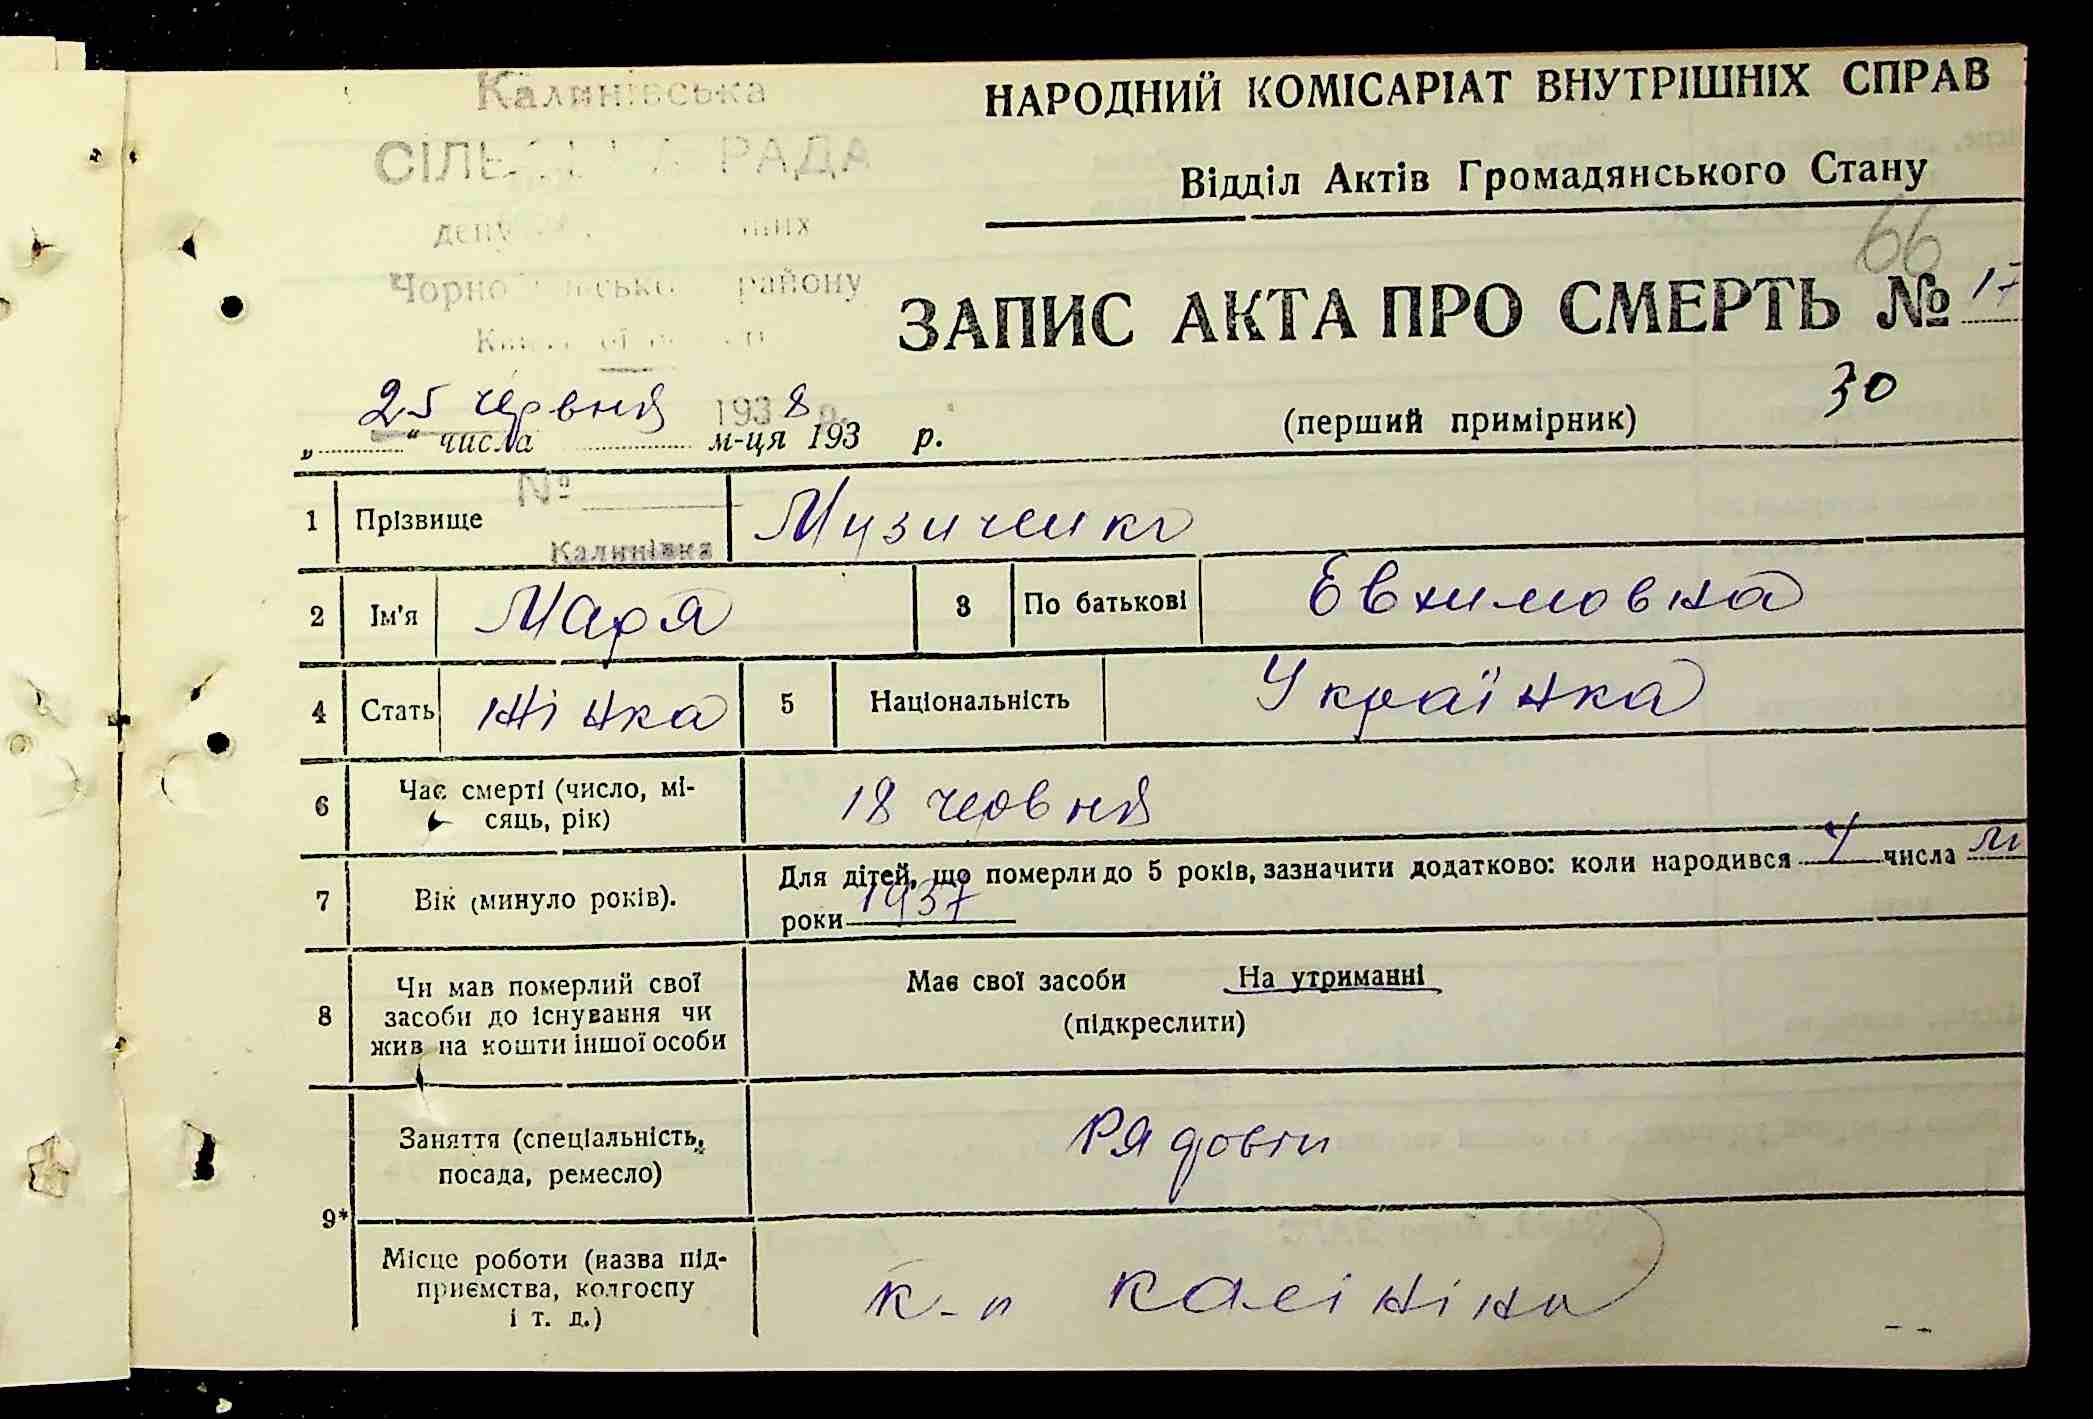 Калинівська
СІЛЬ РАДА
НАРОДНИЙ КОМІСАРІАТ ВНУТРІШНІХ СПРАВ
Відділ Актів Громадянського Стану
району
66
ЗАПИС АКТА ПРО СМЕРТЬ № 17
25 червня 1938 р.
„ “ числа м-ця 193 р.
(перший примірник)
30
№
1 Прізвище Музиченко
Калинівка
2 Ім'я Маря 3 По батькові Евхимовна
4 Стать жінка 5 Національність Українка
6 Час смерті (число, мі-
сяць, рік)
18 червня
7 Вік (минуло років).
Для дітей, що померли до 5 років, зазначити додатково: коли народився 4 числа
роки 1937
8 Чи мав померлий свої
засоби до існування чи
жив на кошти іншої особи
Має свої засоби На утриманні
(підкреслити)
9*
Заняття (спеціальність,
посада, ремесло)
Рядовги
Місце роботи (назва під-
приємства, колгоспу
і т. д.)
к-п Калініна